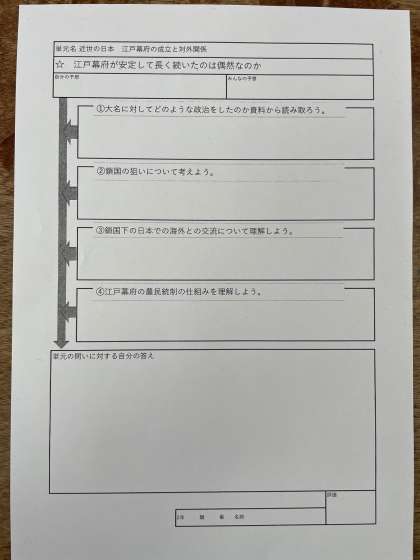 単元名 近世の日本　江戸幕府の成立と対外関係
☆　江戸幕府が安定して長く続いたのは偶然なのか
自分の予想
みんなの予想
①大名に対してどのような政治をしたのか資料から読み取ろう。
②鎖国の狙いについて考えよう。
③鎖国下の日本での海外との交流について理解しよう。
④江戸幕府の農民統制の仕組みを理解しよう。
単元の問いに対する自分の答え
評価
2年　　組　　番　名前